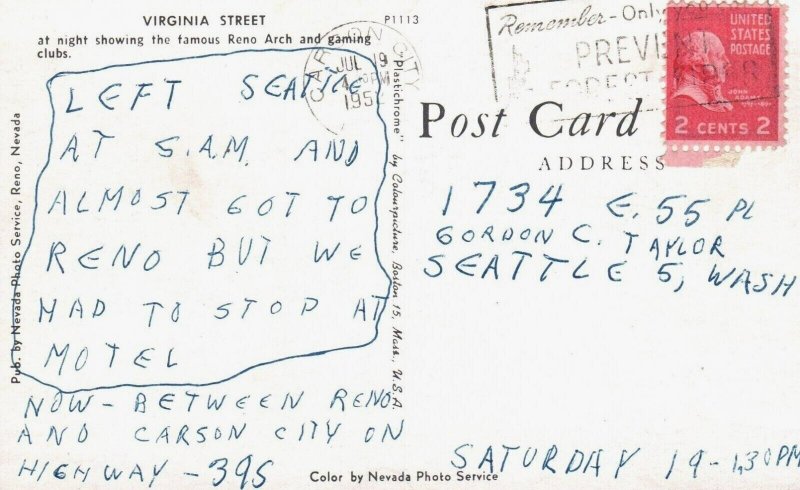 VIRGINIA STREET
P1113
at night showing the famous Reno Arch and gaming
clubs.
LEFT SEATTLE
AT 5.A.M. AND
ALMOST GOT TO
RENO BUT WE
HAD TO STOP AT
MOTEL
NOW - BETWEEN RENO
AND CARSON CITY ON
HIGHWAY - 395
Pub. by Nevada Photo Service, Reno, Nevada
"Plastichrome" by Colourpicture, Boston 15, Mass., U.S.A.
CARSON CITY
JUL 19
PM
Remember - Only
PREVENT
FOREST FIRES
UNITED
STATES
POSTAGE
JOHN ADAMS
2 CENTS 2
Post Card
ADDRESS
1734 E. 55 PL
GORDON C. TAYLOR
SEATTLE 5, WASH
SATURDAY 19 - 1,30PM
Color by Nevada Photo Service